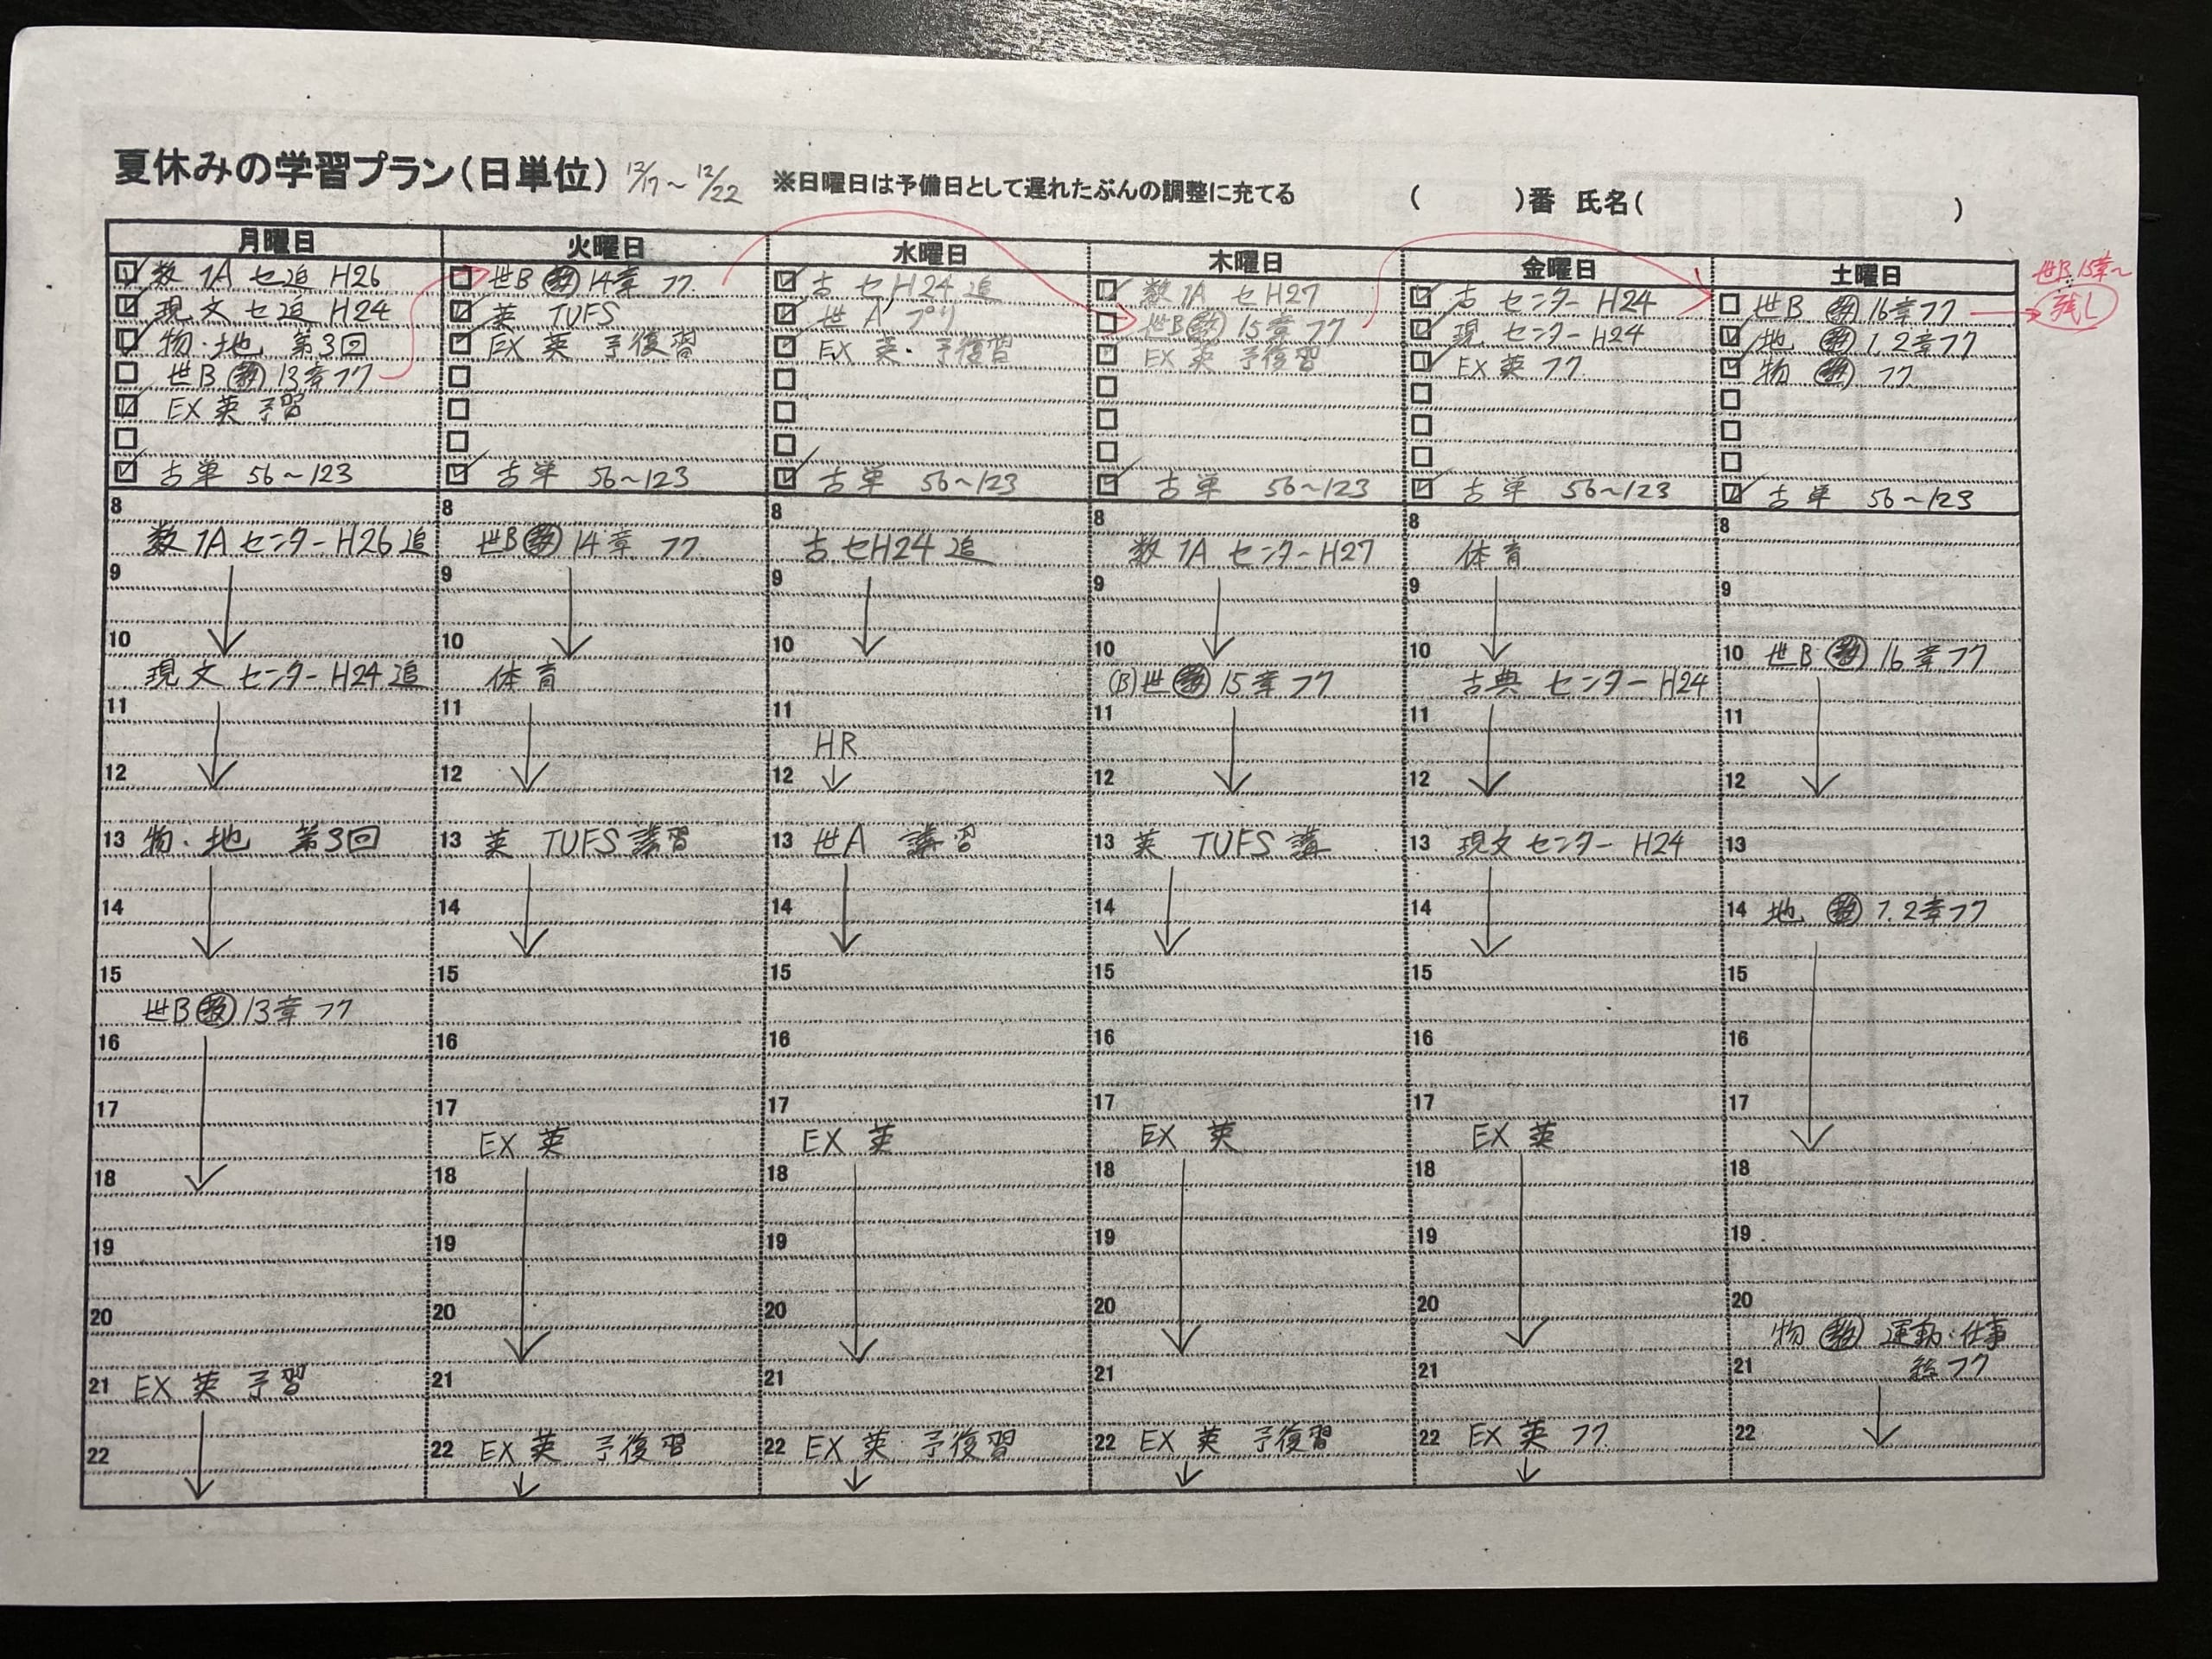 夏休みの学習プラン(日単位) 12/17~12/22 ※日曜日は予備日として遅れたぶんの調整に充てる ( )番 氏名( )
月曜日
数 1A セ追 H26
現文セ追 H24
物・地 第3回
世B 教 13章フク
EX 英 予習
古単 56~123
8
数 1A センター H26 追
9
10
現文 センター H24 追
11
12
13 物・地 第3回
14
15
世B 教 13章 フク
16
17
18
19
20
21 EX 英 予習
22
火曜日
世B 教 14章 フク
英 TUFS
EX 英 予復習
古単 56~123
8
世B 教 14章 フク
9
10
体育
11
12
13 英 TUFS 講習
14
15
16
17
EX 英
18
19
20
21
22 EX 英 予復習
水曜日
古 セH24 追
世A プリ
EX 英・予復習
古単 56~123
8
古 セH24 追
9
10
11
HR
12
13 世A 講習
14
15
16
17
EX 英
18
19
20
21
22 EX 英 予復習
木曜日
数 1A セH27
世B 教 15章 フク
EX 英 予復習
古単 56~123
8
数 1A センターH27
9
10
(B)世 教 15章 フク
11
12
13 英 TUFS 講
14
15
16
17
EX 英
18
19
20
21
22 EX 英 予復習
金曜日
古 センター H24
現 センター H24
EX 英 フク
古単 56~123
8
体育
9
10
古典 センター H24
11
12
13 現文 センター H24
14
15
16
17
EX 英
18
19
20
21
22 EX 英 フク
土曜日
世B 教 16章フク
地 教 1.2章フク
物 教 フク
古単 56~123
8
9
10 世B 教 16章フク
11
12
13
14 地 教 1.2章フク
15
16
17
18
19
20
物 教 運動・仕事
21 フク
22
世B 15章~
残し